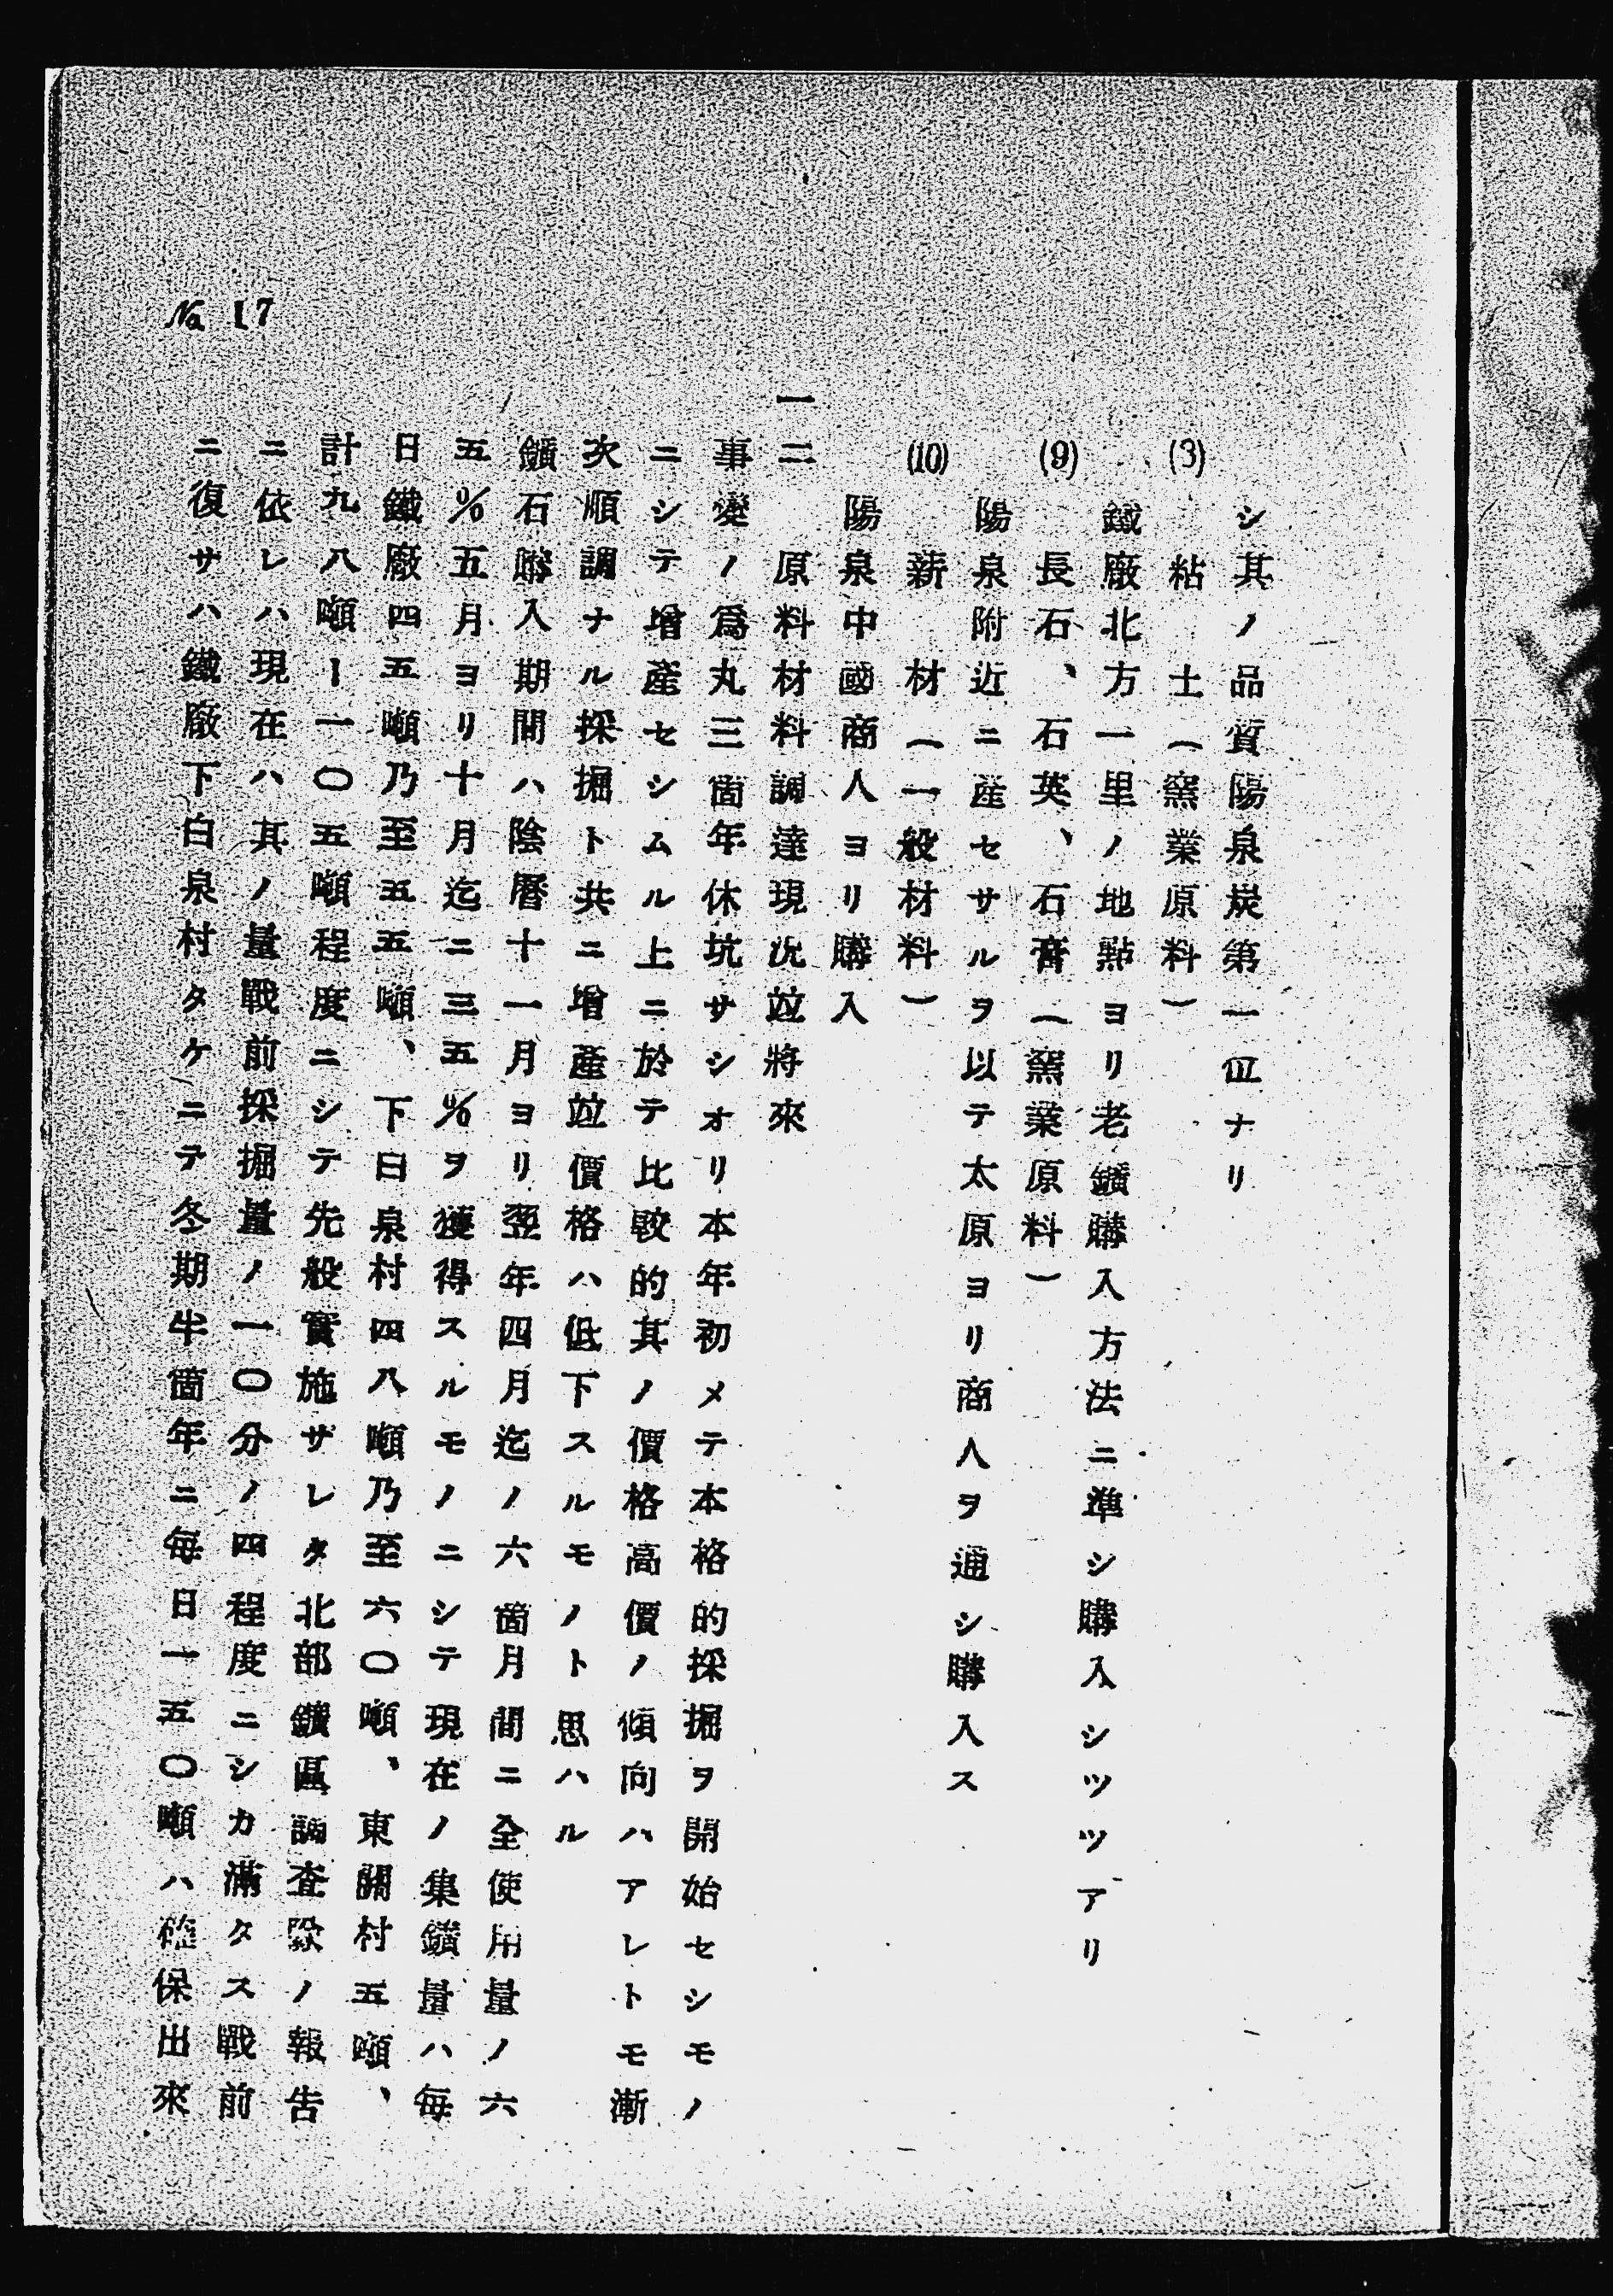 シ其ノ品質陽泉炭第一位ナリ
(3) 粘土（窯業原料）
鐵廠北方一里ノ地點ヨリ老鑛購入方法ニ準シ購入シツツアリ
(9) 長石、石英、石膏（窯業原料）
陽泉附近ニ産セサルヲ以テ太原ヨリ商人ヲ通シ購入ス
(10) 薪材（一般材料）
陽泉中國商人ヨリ購入
一二 原料材料調達現況竝將來
事變ノ爲丸三箇年休坑サシオリ本年初メテ本格的採掘ヲ開始セシモノ
ニシテ増産セシムル上ニ於テ比較的其ノ價格高價ノ傾向ハアレトモ漸
次順調ナル採掘ト共ニ増産竝價格ハ低下スルモノト思ハル
鑛石購入期間ハ陰暦十一月ヨリ翌年四月迄ノ六箇月間ニ全使用量ノ六
五％五月ヨリ十月迄ニ三五％ヲ獲得スルモノニシテ現在ノ集鑛量ハ毎
日鐵廠四五噸乃至五五噸、下白泉村四八噸乃至六〇噸、東關村五噸、
計九八噸ー一〇五噸程度ニシテ先般實施ザレタ北部鑛區調査隊ノ報告
ニ依レハ現在ハ其ノ量戰前採掘量ノ一〇分ノ四程度ニシカ滿タス戰前
ニ復サハ鐵廠下白泉村タケニテ冬期半箇年ニ毎日一五〇噸ハ確保出來
№ 17